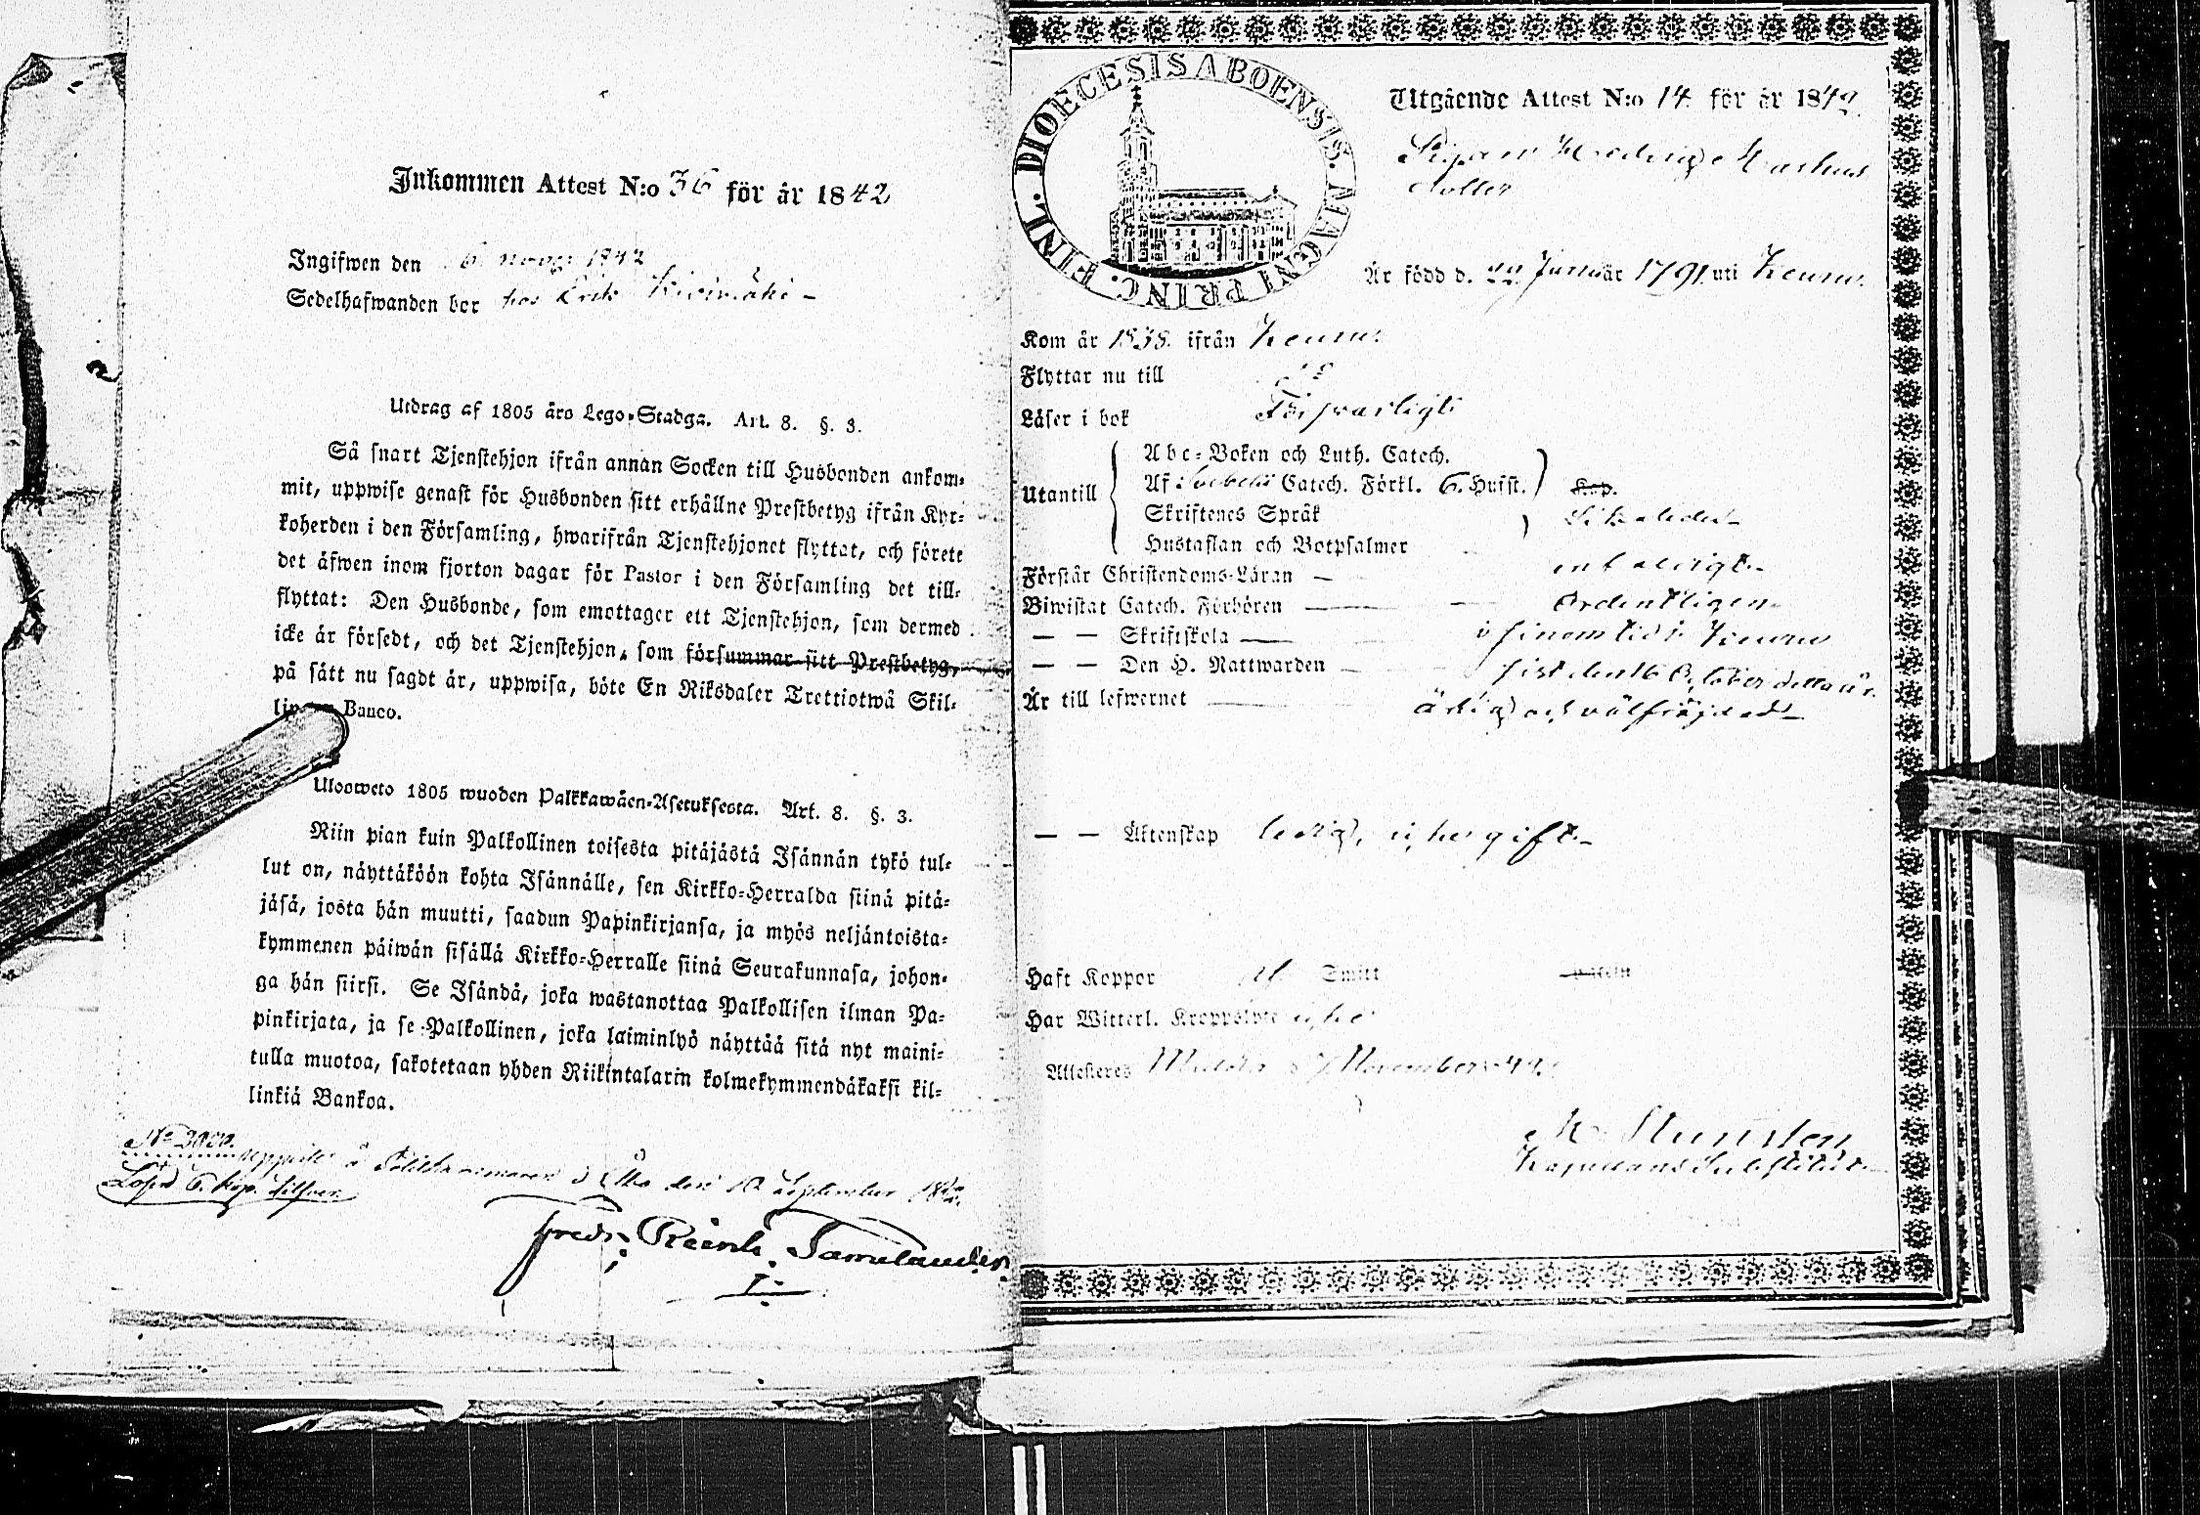 Inkommen Attest N:o 36 för år 1842
Ingifwen den 6 novbr 1842
Sedelhafwanden bor hos Erik
Utdrag af 1805 års Lego-Stadga. Art. 8. §. 3.
Så snart Tjenstehjon ifrån annan Socken till Husbonden ankom-
mit, uppwise genast för Husbonden sitt erhållne Prestbetyg ifrån Kyr-
koherden i den Församling, hwarifrån Tjenstehjonet flyttat, och förete
det äfwen inom fjorton dagar för Pastor i den Församling det till-
flyttat: Den Husbonde, som emottager ett Tjenstehjon, som dermed
icke är försedt, och det Tjenstehjon, som försummar sitt Prestbetyg,
på sätt nu sagdt är, uppwisa, böte En Riksdaler Trettiotwå Skil-
Banco.
Ulosweto 1805 wuoden Palkkawäen-Asetuksesta. Art. 8. §. 3.
Niin pian kuin Palkollinen toisesta pitäjästä Isännän tykö tul-
lut on, näyttäköön kohta Isännälle, sen Kirkko-Herralda siinä pitä-
jäsä, josta hän muutti, saadun Papinkirjansa, ja myös neljäntoista-
kymmenen päiwän sisällä Kirkko-Herralle siinä Seurakunnasa, johon-
ga hän siirsi. Se Isändä, joka wastanottaa Palkollisen ilman Pa-
pinkirjata, ja se Palkollinen, joka laiminlyö näyttää sitä nyt maini-
tulla muotoa, sakotetaan yhden Riikintalarin kolmekymmendäkaksi kil-
linkiä Bankoa.
å i Åbo den 10 September
Lösen 6. kop. silfver
Fredr. Reinh.
FINL. DIOECESIS ABOENSIS. MAGNI PRINC.
Utgående Attest N:o 14. för år 1842.
Är född d. 22 Januar 1791 uti Keuru.
Kom år 1838. ifrån Keuru.
Flyttar nu till
Läser i bok Försvarligt
Utantill
Abc-Boken och Luth. Catech.
Af Catech. Förkl. 6. Hufst.
Skriftenes Språk
Hustaflan och Botpsalmer
Kap.
Förstår Christendoms-Läran
Biwistat Catech. Förhören Ordentligen
— — Skriftskola i sinom tid i Keuru
— — Den H. Nattwarden sist den 16 October detta år.
Är till lefwernet ärlig och välfrejdad
— — Äktenskap ledig, ogift
Haft Koppor af Smitt
Har Witterl. Kroppslyte
Attesteras November